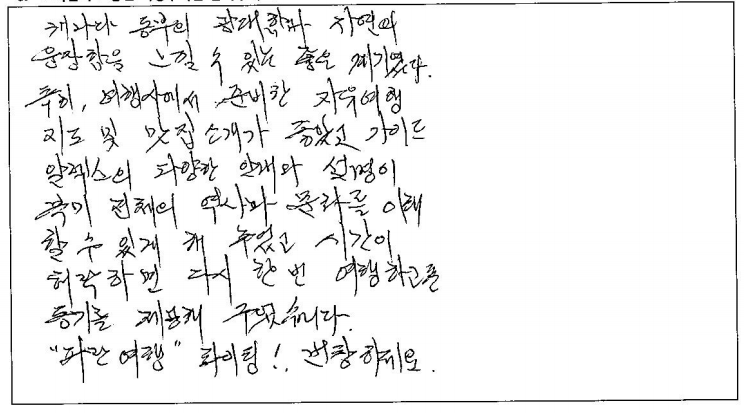 캐나다 동부의 광대함과 자연의
웅장함을 느낄 수 있는 좋은 계기였다.
특히, 여행사에서 준비한 자유여행
지도 및 맛집소개가 좋았고 가이드
알렉스의 다양한 안내와 설명이
북미 전체의 역사와 문화를 이해
할 수 있게 해 주었고 시간이
허락하면 다시 한 번 여행하고픈
동기를 제공해 주었습니다.
"파란여행" 화이팅!. 번창하세요.